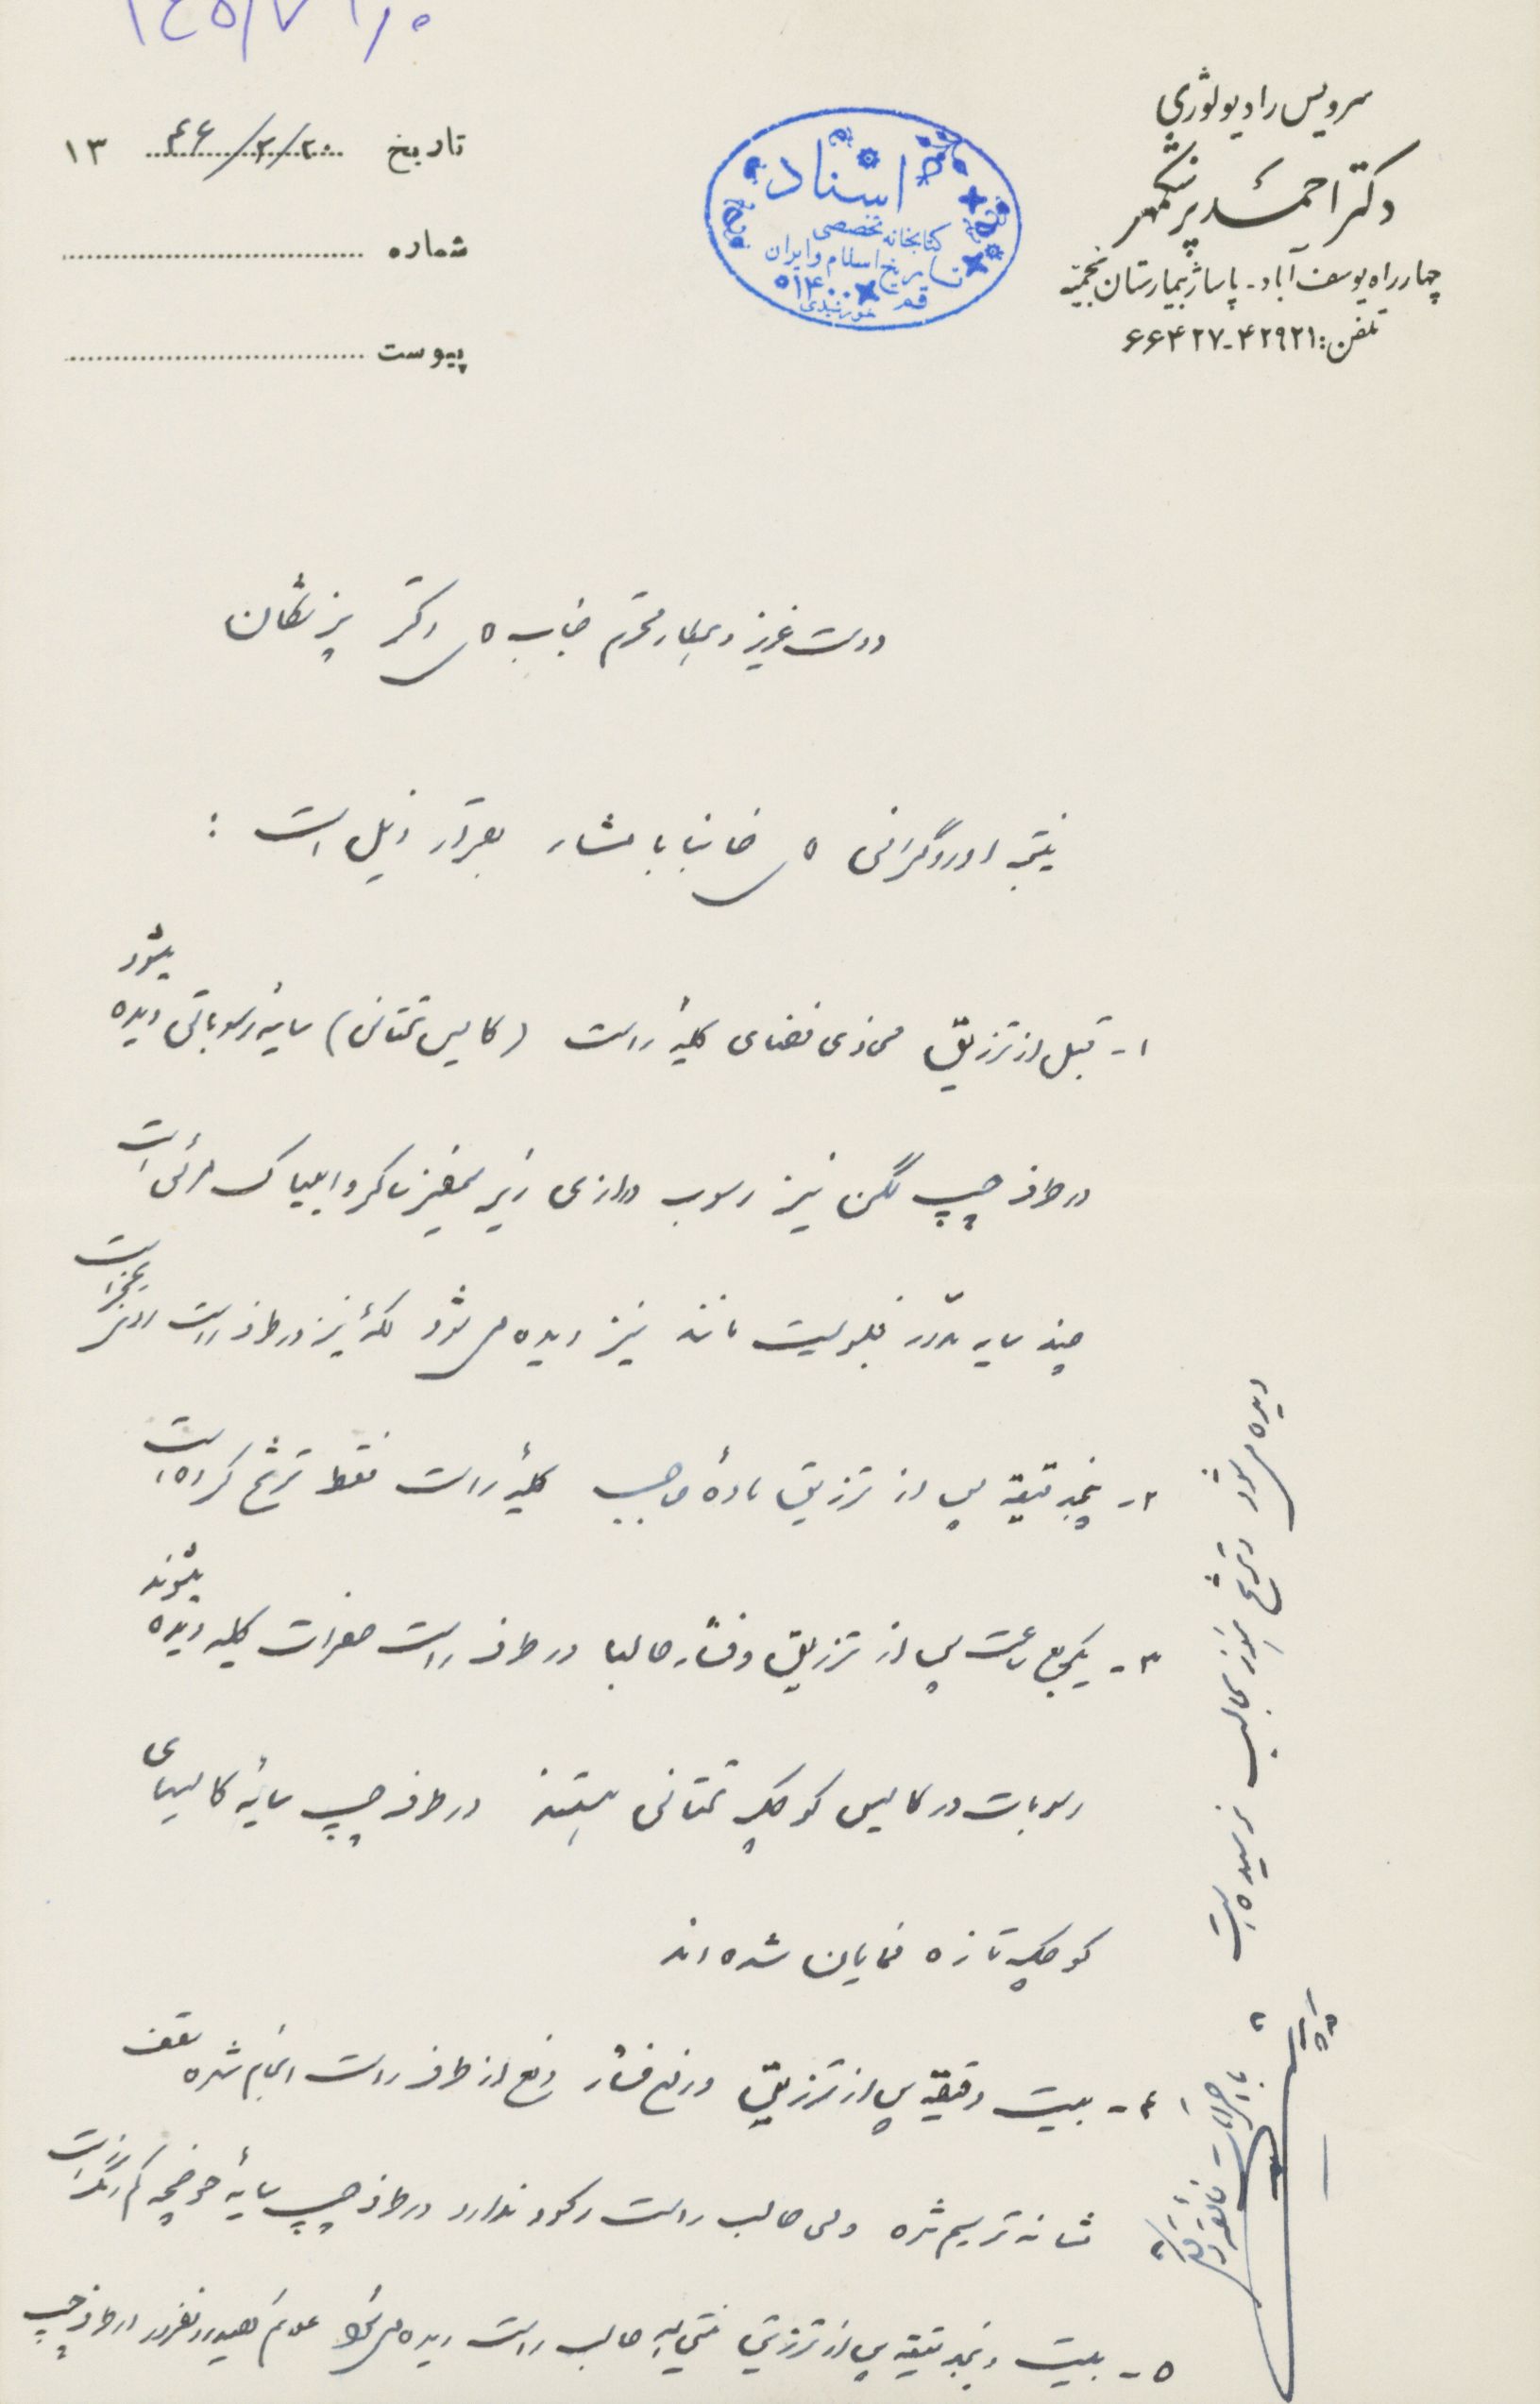 سرویس رادیولوژی
دکتر احمد پزشگمهر
چهارراه یوسف آباد - پاساژ بیمارستان نجمیه
تلفن: ۴۲۹۲۱-۶۶۴۲۷
اسناد
کتابخانه تخصصی
تاریخ اسلام و ایران
قم ۱۴۰۰
خورشیدی
تاریخ ۲۰/۲/۴۶ ۱۳
شماره
پیوست
دوست عزیز و همکار محترم جناب آقای دکتر پزشگان
نتیجه اوروگرافی آقای خانبابا مشار بقرار ذیل است :
۱- قبل از تزریق محاذی فضای کلیه راست (کالیس تحتانی) سایه رسوباتی دیده میشود
در طرف چپ لگن نیز رسوب درازی زیر مفصل ساکروایلیاک مرئی است
چند سایه مدور فلبولیت مانند نیز دیده می شود لکه نیز در طرف راست
۲- پنجدقیقه پس از تزریق ماده حاجب کلیه راست فقط ترشح کرده است
۳- یکربع ساعت پس از تزریق و فشار حالبها در طرف راست حفرات کلیه دیده میشوند
رسوبات در کالیس کوچک تحتانی هستند در طرف چپ سایه کالیسهای
کوچک تازه نمایان شده اند
۴- بیست دقیقه پس از تزریق و رفع فشار دفع از طرف راست انجام شده سقف
مثانه ترسیم شده ولی حالب راست رکود ندارد در طرف چپ سایه حوضچه کم رنگ است
۵- بیست و پنجدقیقه پس از تزریق منتهی الیه حالب راست دیده می شود علائم هیدرونفروز در طرف چپ
دیده می شود و ترشح هنوز بحالب نرسیده است
با احترامات فائقه